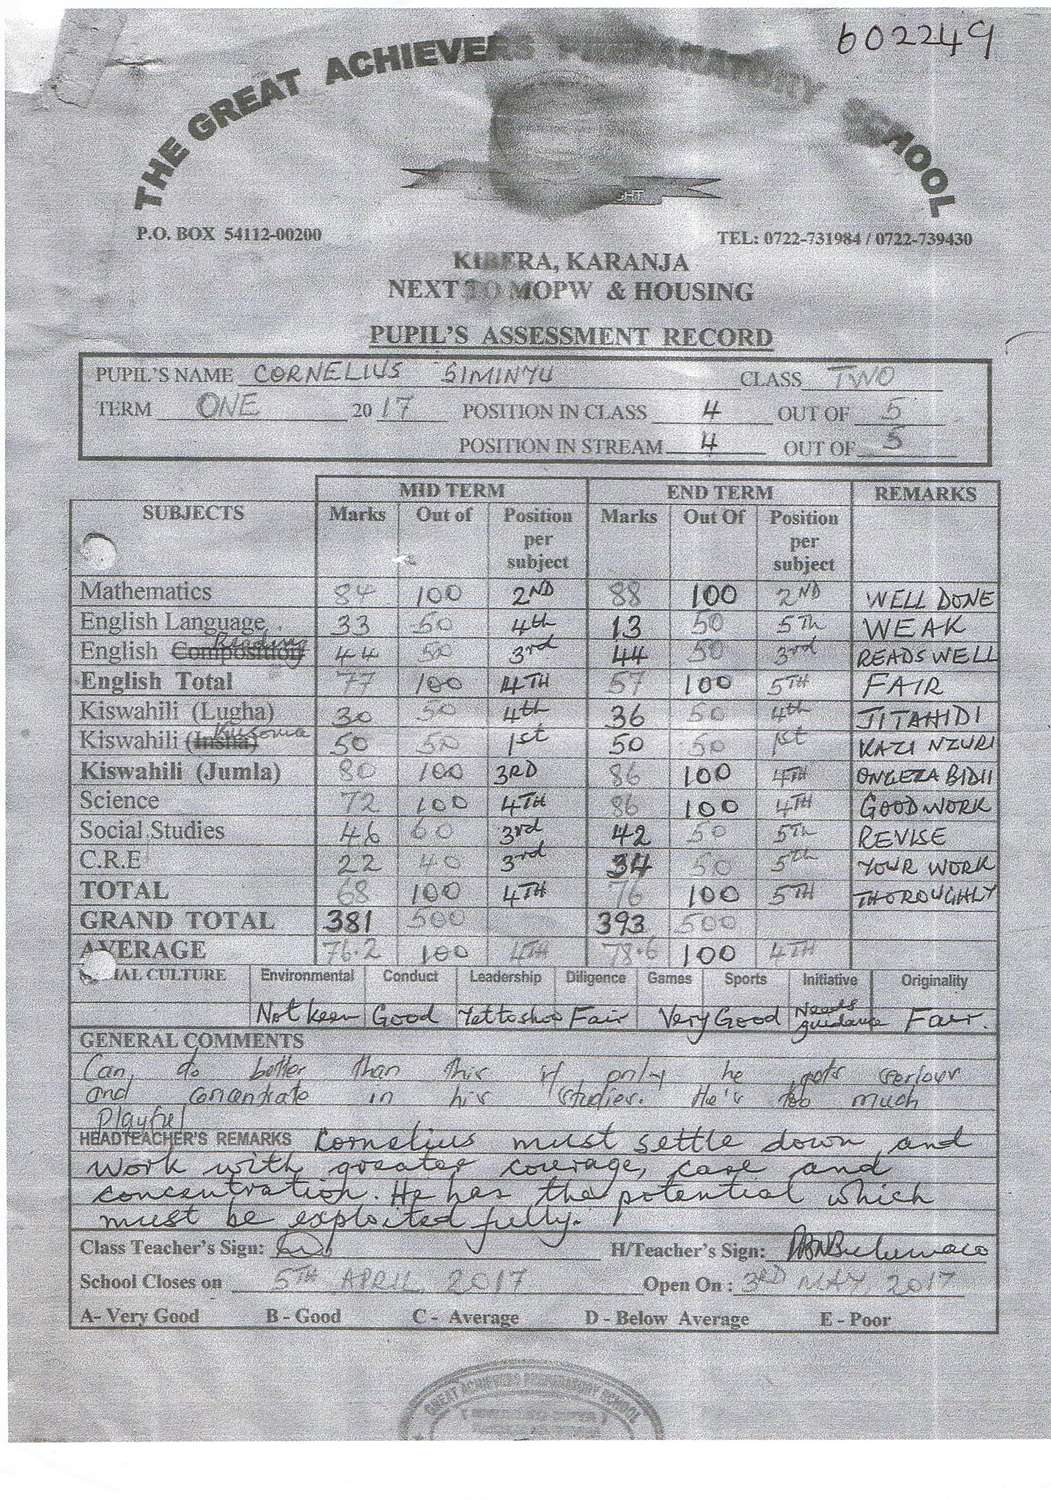 602249
THE GREAT ACHIEVERS PREPARATORY SCHOOL
P.O. BOX 54112-00200
TEL: 0722-731984 / 0722-739430
KIBERA, KARANJA
NEXT TO MOPW & HOUSING
PUPIL'S ASSESSMENT RECORD
PUPIL'S NAME CORNELIUS SIMINYU CLASS TWO
TERM ONE 2017 POSITION IN CLASS 4 OUT OF 5
POSITION IN STREAM 4 OUT OF 5
MID TERM END TERM REMARKS
SUBJECTS Marks Out of Position per subject Marks Out Of Position per subject
Mathematics 84 100 2ND 88 100 2ND WELL DONE
English Language 33 50 4th 13 50 5Th WEAK
English Composition Reading 44 50 3rd 44 50 3rd READS WELL
English Total 77 100 4TH 57 100 5TH FAIR
Kiswahili (Lugha) 30 50 4th 36 50 4th JITAHIDI
Kiswahili (Insha) Kusoma 50 50 1st 50 50 1st KAZI NZURI
Kiswahili (Jumla) 80 100 3RD 86 100 4TH ONGEZA BIDII
Science 72 100 4TH 86 100 4TH GOOD WORK
Social Studies 46 60 3rd 42 50 5Th REVISE
C.R.E 22 40 3rd 34 50 5th YOUR WORK
TOTAL 68 100 4TH 76 100 5TH THOROUGHLY
GRAND TOTAL 381 500 393 500
AVERAGE 76.2 100 4TH 78.6 100 4TH
CULTURE Environmental Conduct Leadership Diligence Games Sports Initiative Originality
Not keen Good Yet to show Fair Very Good Needs guidance Fair.
GENERAL COMMENTS
Can do better than this if only he gets serious
and concentrate in his studies. He's too much
playful
HEADTEACHER'S REMARKS Cornelius must settle down and
work with greater courage, care and
concentration. He has the potential which
must be exploited fully.
Class Teacher's Sign: H/Teacher's Sign:
School Closes on 5TH APRIL, 2017 Open On : 3RD MAY, 2017
A- Very Good B - Good C - Average D - Below Average E - Poor
GREAT ACHIEVERS PREPARATORY SCHOOL